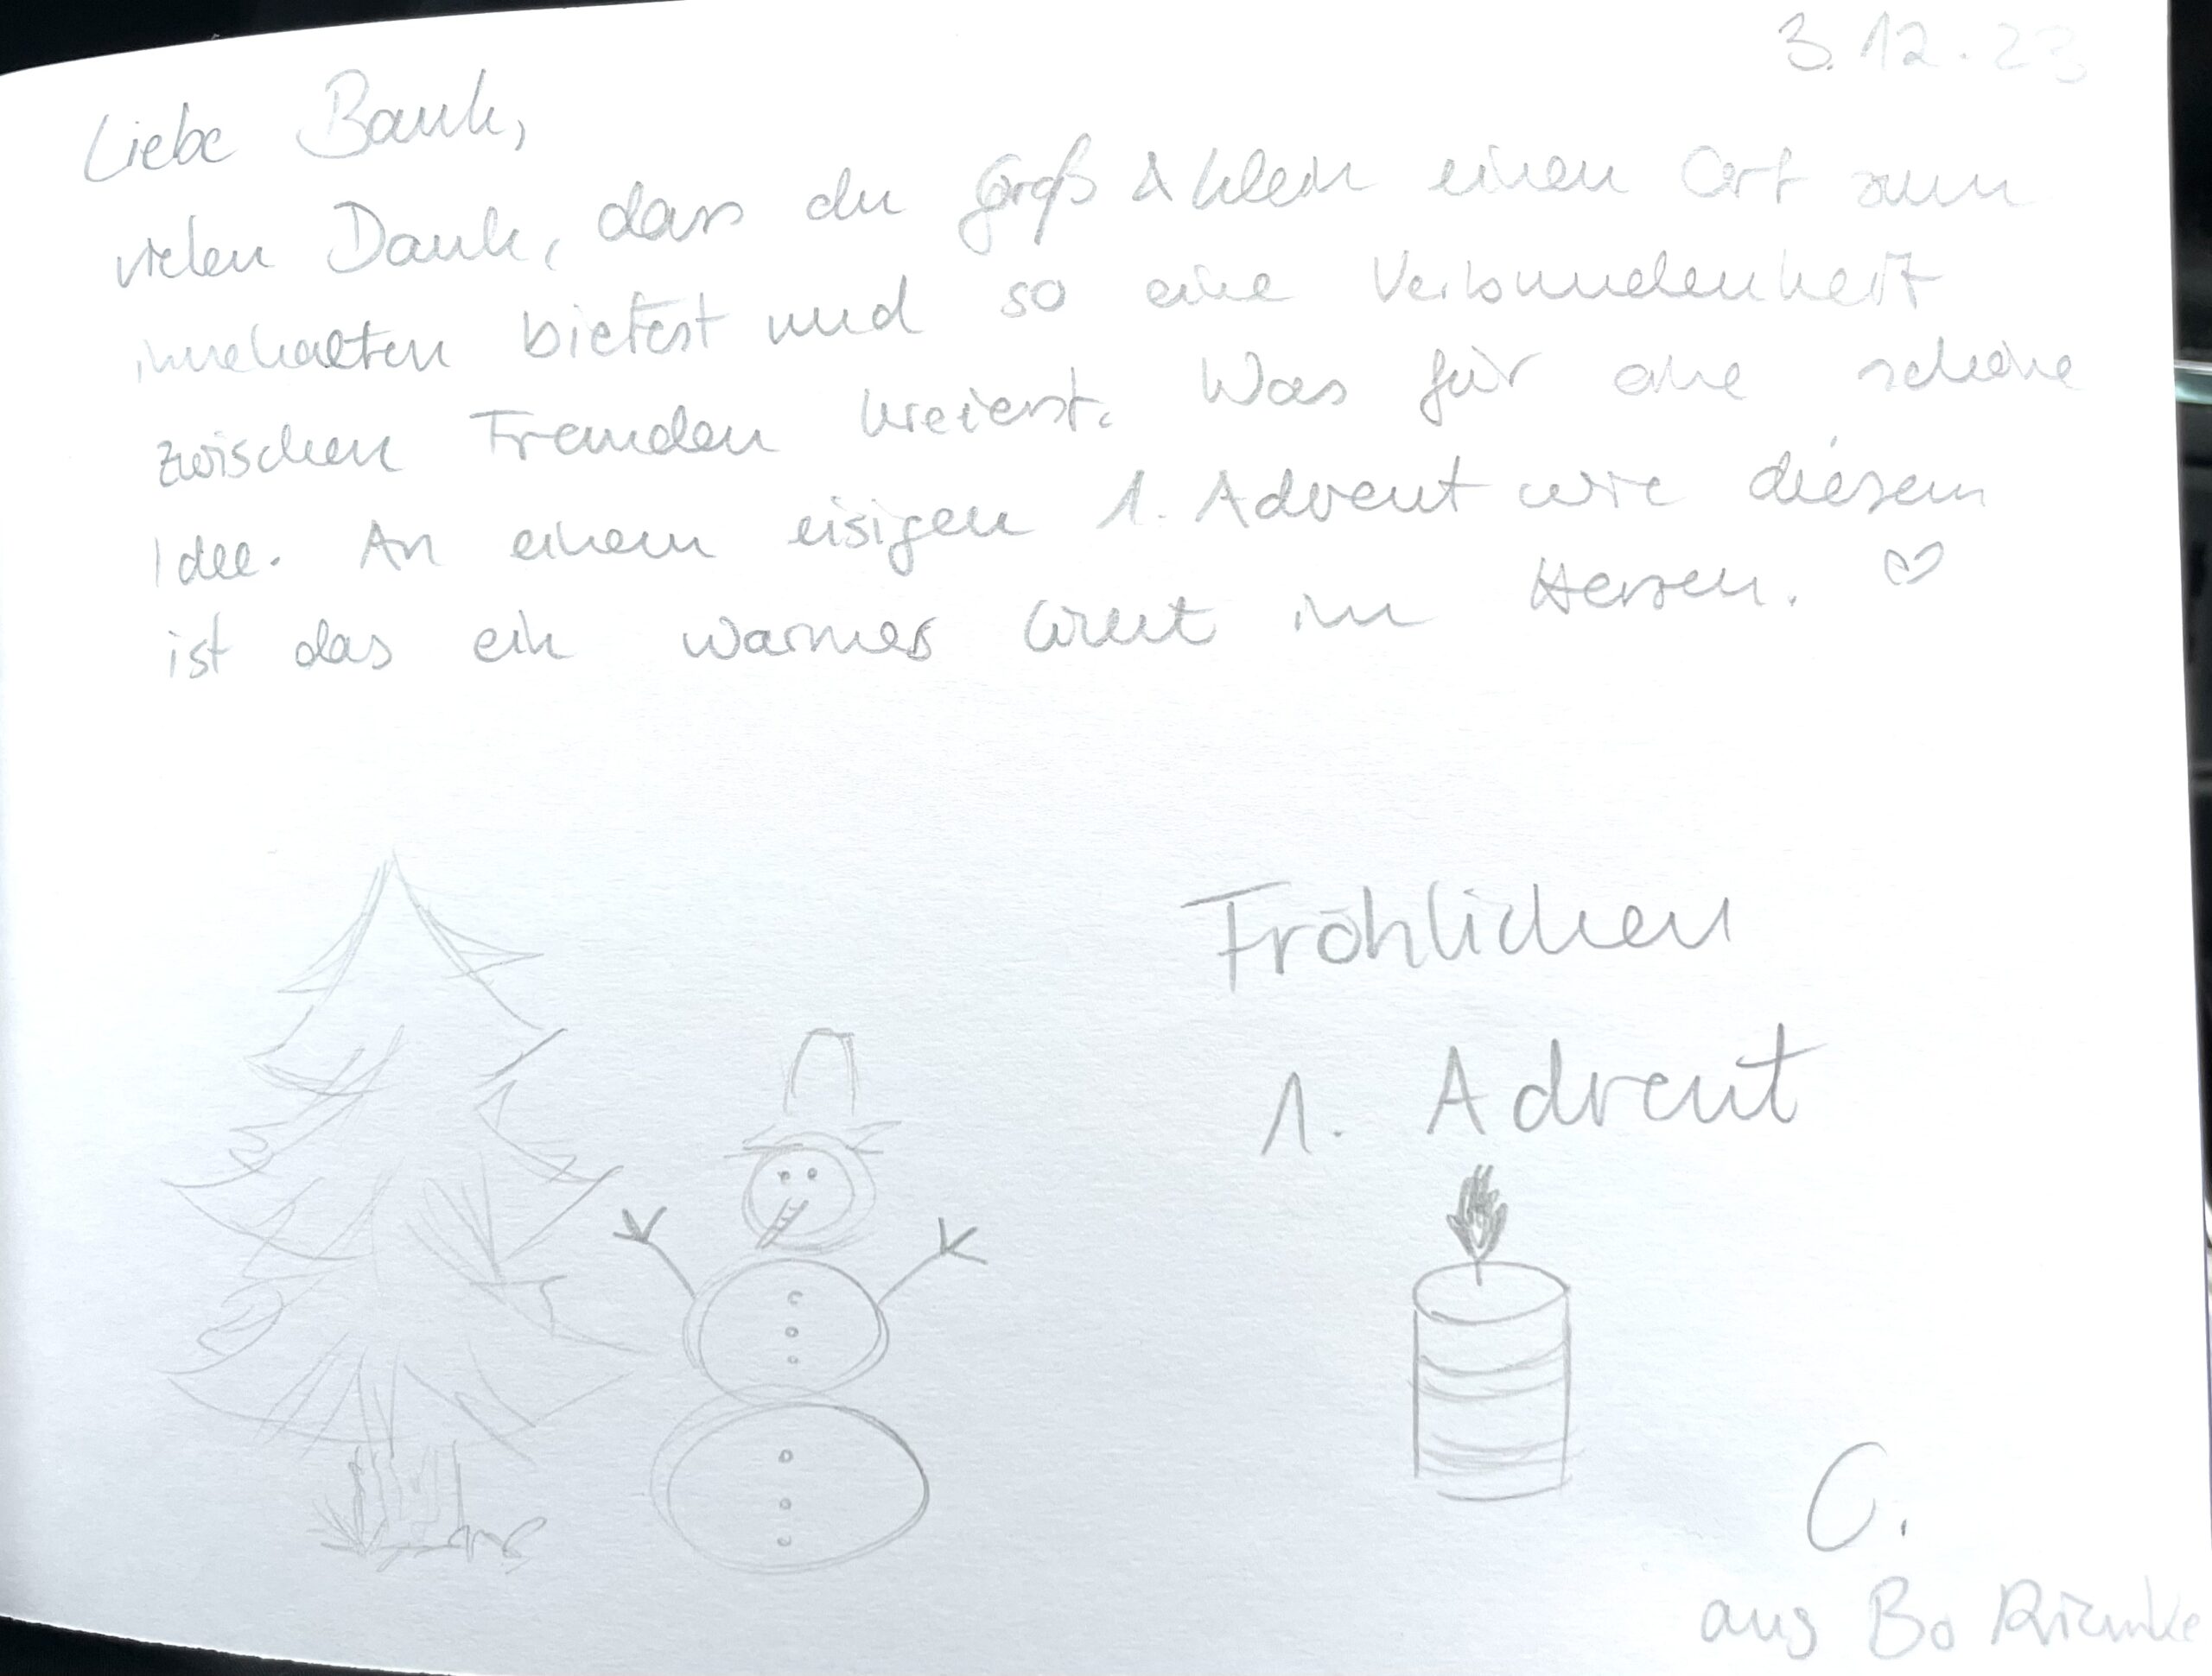 3.12.23
Liebe Bank,
vielen Dank, dass du Groß & Klein einen Ort zum
innehalten bietest und so eine Verbundenheit
zwischen Fremden kreierst. Was für eine schöne
Idee. An einem eisigen 1. Advent wie diesem
ist das ein warmes Licht im Herzen. ♡
Fröhlichen
1. Advent
C.
aus Bo Riemke